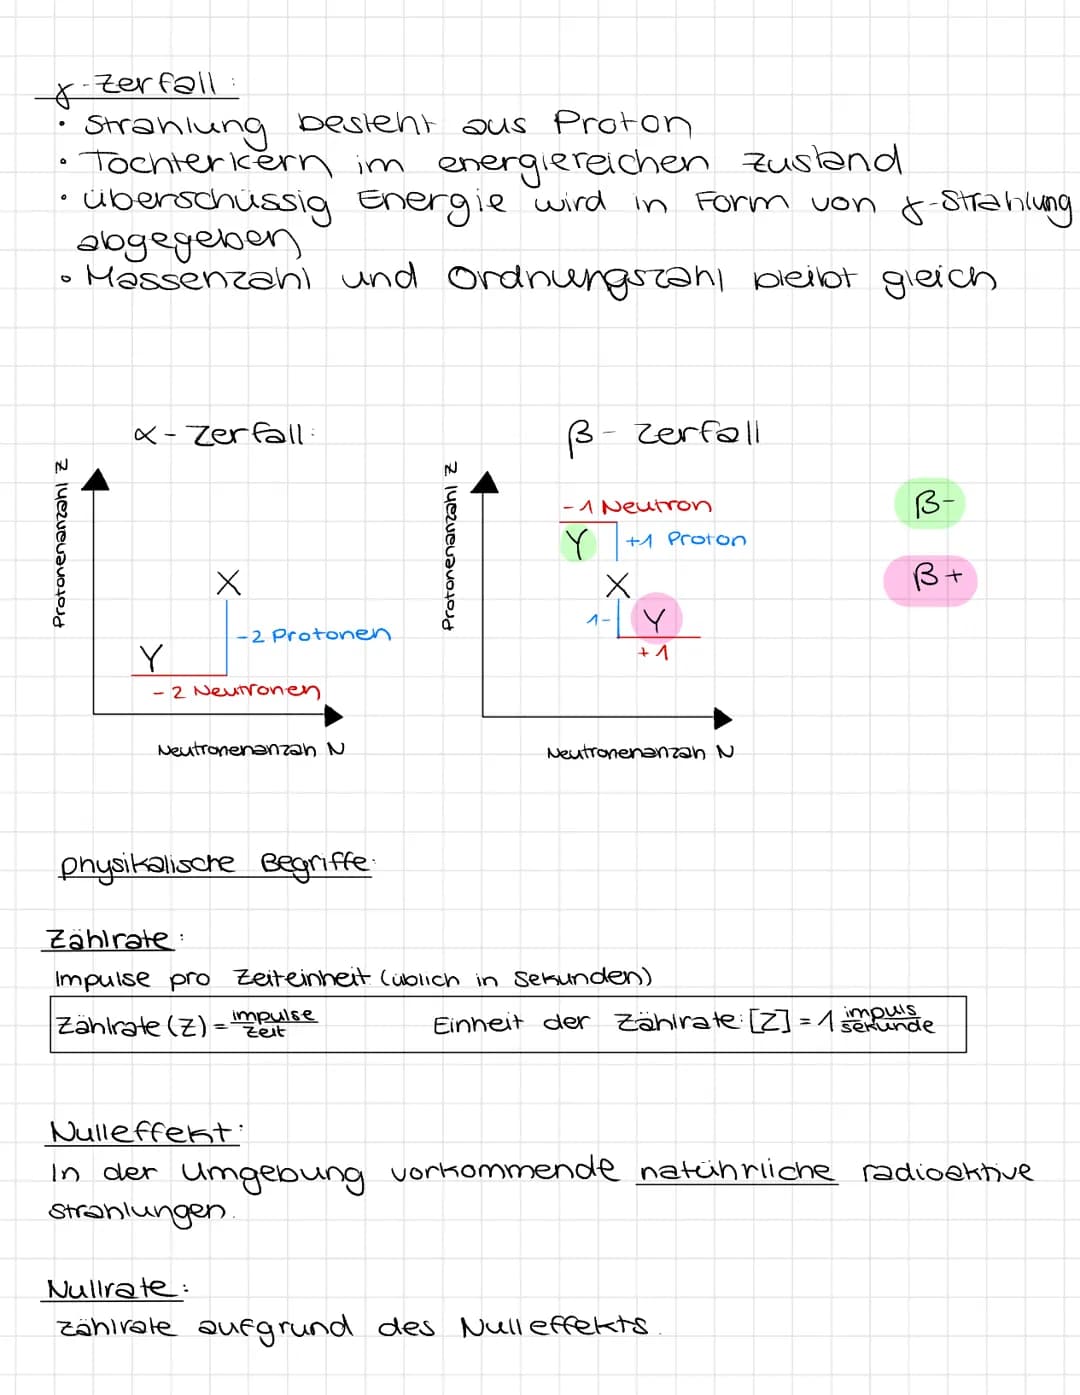 γ-Zerfall:
• Strahlung besteht aus Proton
• Tochterkern im energiereichen Zustand
• überschüssig Energie wird in Form von γ-Strahlung
abgegeben
• Massenzahl und Ordnungszahl bleibt gleich
α-Zerfall:
β-Zerfall
Protonenanzahl Z
Protonenanzahl Z
-1 Neutron
β-
Y
+1 Proton
X
X
β+
1-
Y
-2 Protonen
+1
Y
-2 Neutronen
Neutronenanzah N
Neutronenanzah N
physikalische Begriffe:
Zählrate:
Impulse pro Zeiteinheit (üblich in Sekunden)
Zählrate (Z) = impulse/Zeit Einheit der Zählrate: [Z] = 1 impuls/sekunde
Nulleffekt:
In der Umgebung vorkommende natührliche radioaktive
Strahlungen.
Nullrate:
Zählrate aufgrund des Nulleffekts.